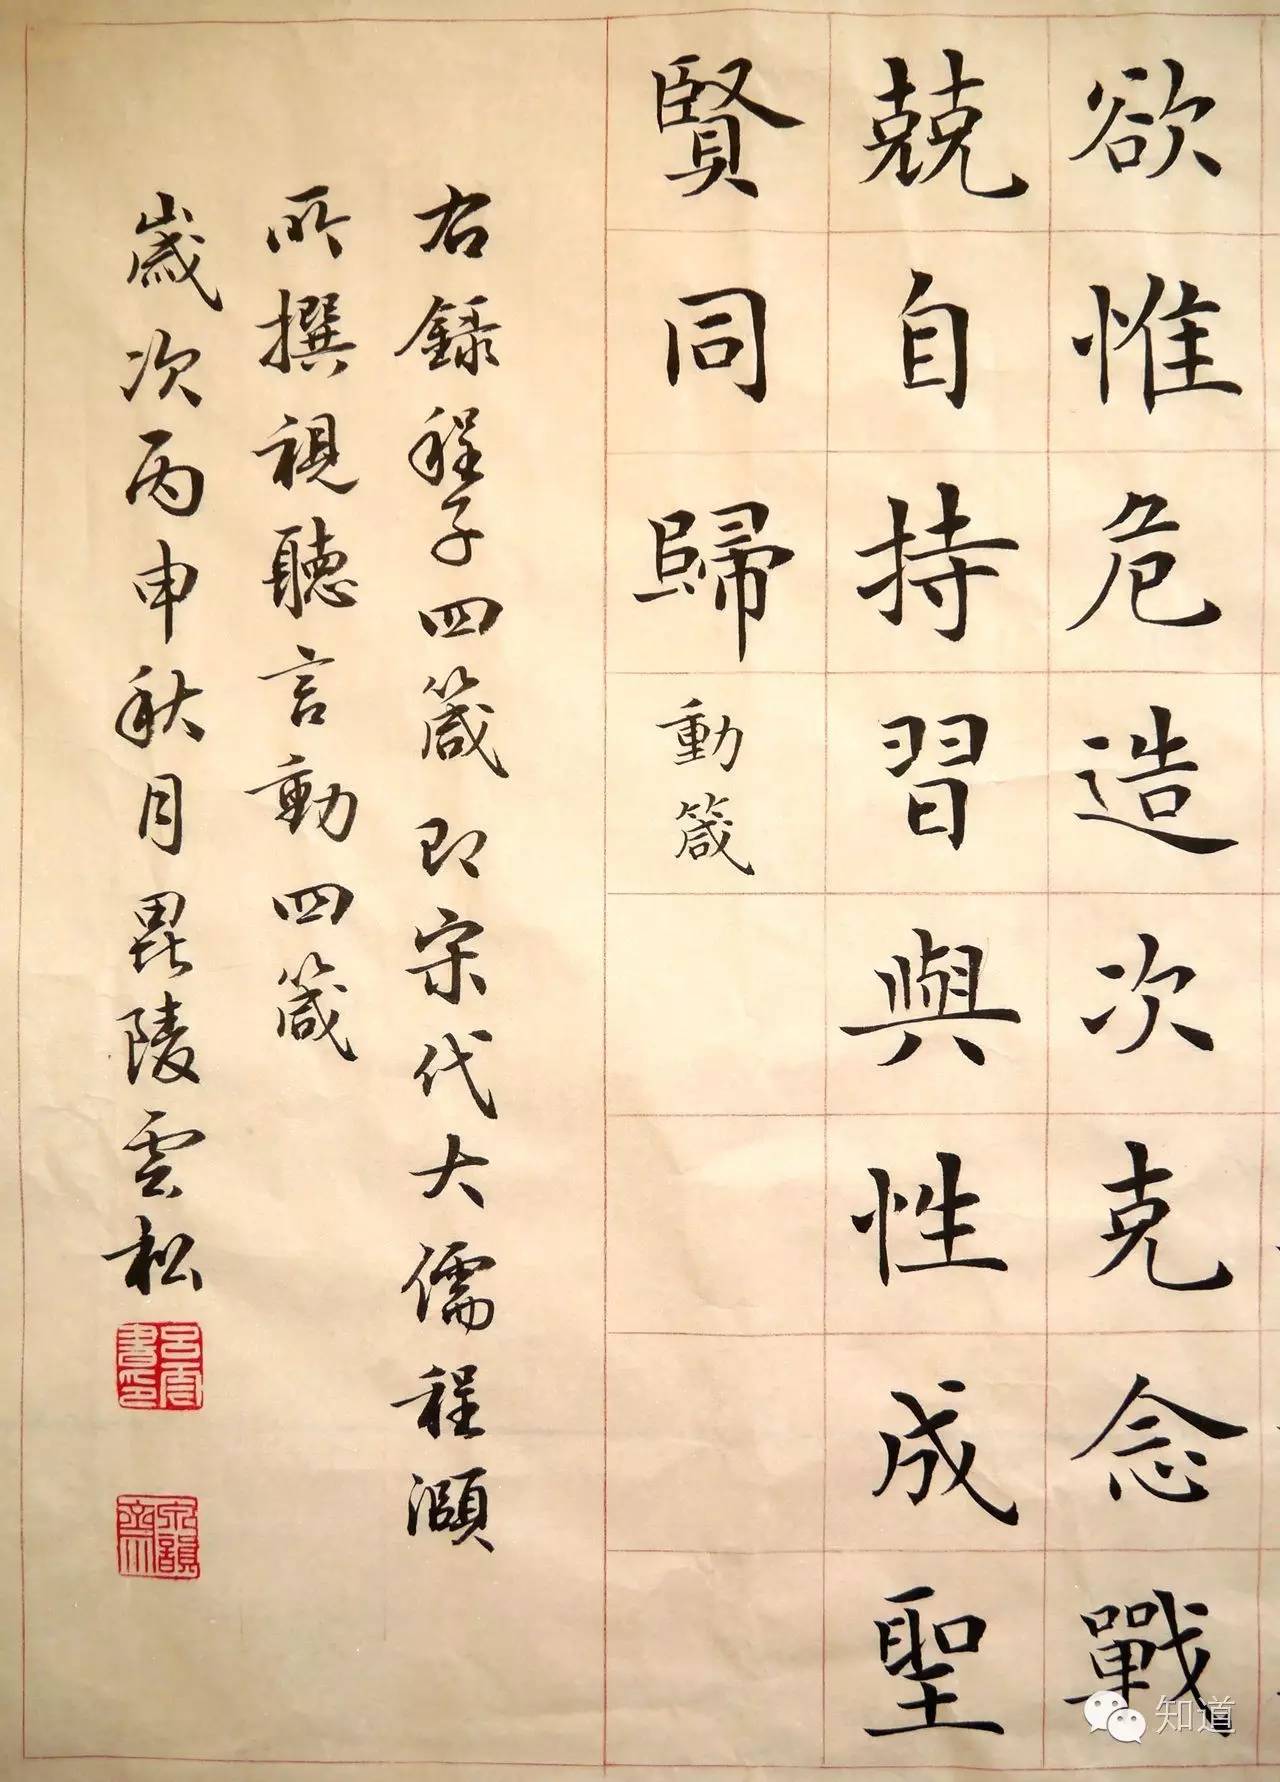 欲惟危造次克念戰
兢自持習與性成聖
賢同歸
動箴
右録程子四箴即宋代大儒程顥
所撰視聽言動四箴
歲次丙申秋月毘陵雲松
吕雲書印
知道